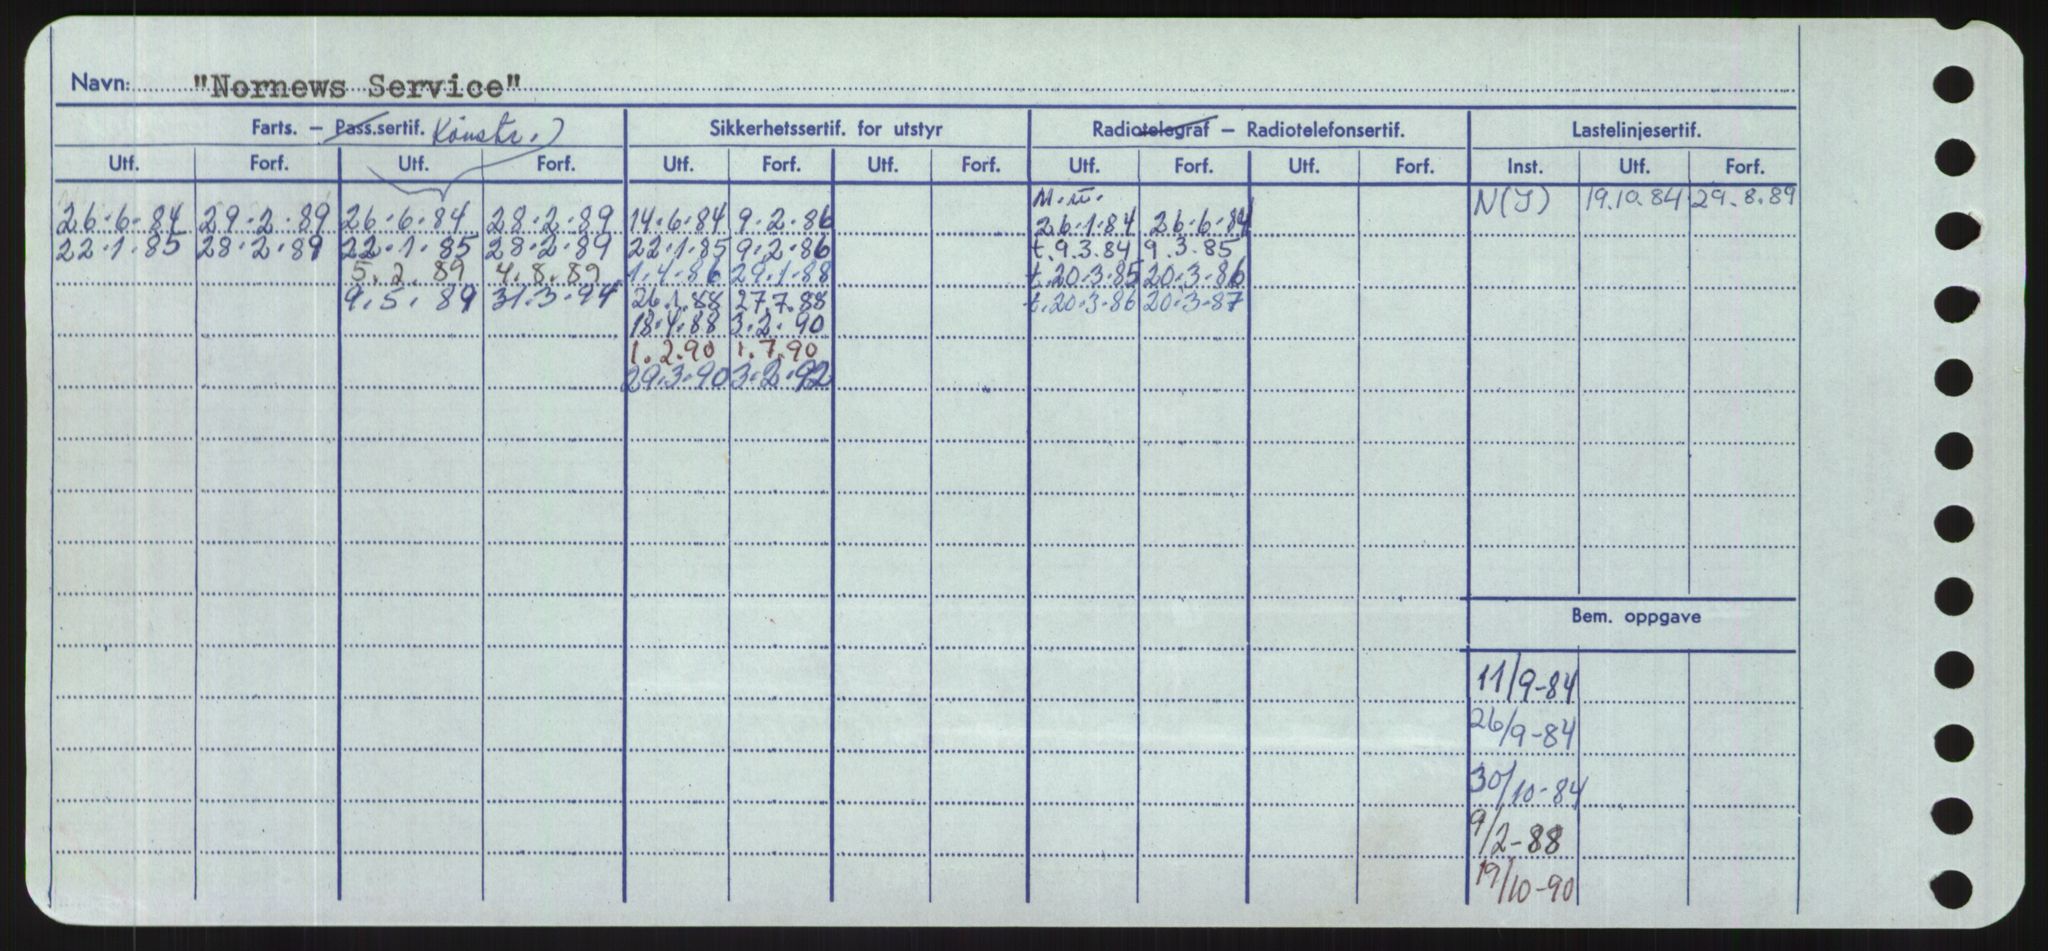 Navn: "Nornews Service"
Farts. – Pass.sertif. Konstr.) Sikkerhetssertif. for utstyr Radiotelegraf – Radiotelefonsertif. Lastelinjesertif.
Utf. Forf. Utf. Forf. Utf. Forf. Utf. Forf. Utf. Forf. Utf. Forf. Inst. Utf. Forf.
M.w. N(I) 19.10.84 29.8.89
26.6.84 29.2.89 26.6.84 28.2.89 14.6.84 9.2.86 26.1.84 26.6.84
22.1.85 28.2.89 22.1.85 28.2.89 22.1.85 9.2.86 t.9.3.84 9.3.85
5.2.89 4.8.89 1.4.86 29.1.88 t.20.3.85 20.3.86
9.5.89 31.3.94 26.1.88 27.7.88 t.20.3.86 20.3.87
18.4.88 3.2.90
1.2.90 1.7.90
29.3.90 3.2.92
Bem. oppgave
11/9-84
26/9-84
30/10-84
9/2-88
19/10-90